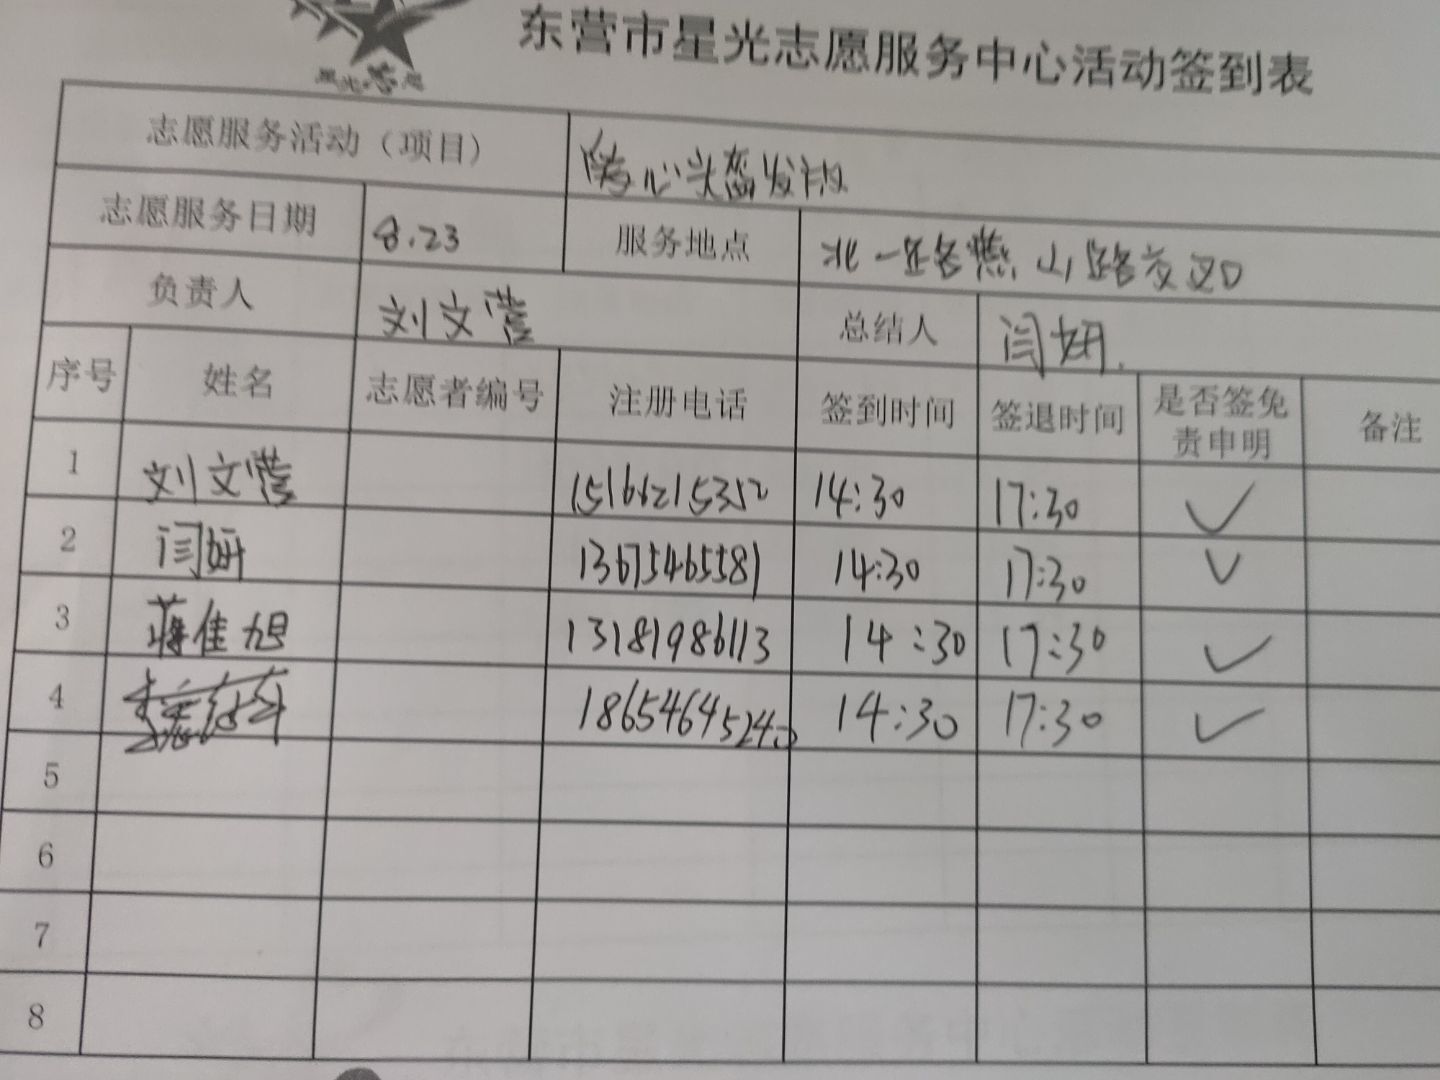 东营市星光志愿服务中心活动签到表
星光志愿
志愿服务活动（项目） 心头盔发放
志愿服务日期 8.23 服务地点 北一路燕山路交叉口
负责人 刘文莹 总结人 闫妍
序号 姓名 志愿者编号 注册电话 签到时间 签退时间 是否签免责申明 备注
1 刘文莹 15166215352 14:30 17:30 ✓
2 闫妍 13675465581 14:30 17:30 ✓
3 蒋佳旭 13181986113 14:30 17:30 ✓
4 18654645240 14:30 17:30 ✓
5
6
7
8